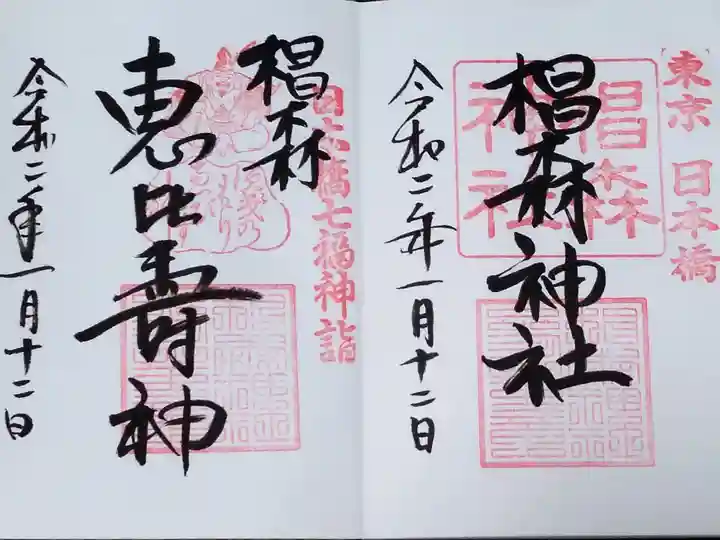 東京 日本橋
椙森神社
椙森
神社
令和二年一月十二日
日本橋七福神詣
椙森
恵比寿神
令和二年一月十二日